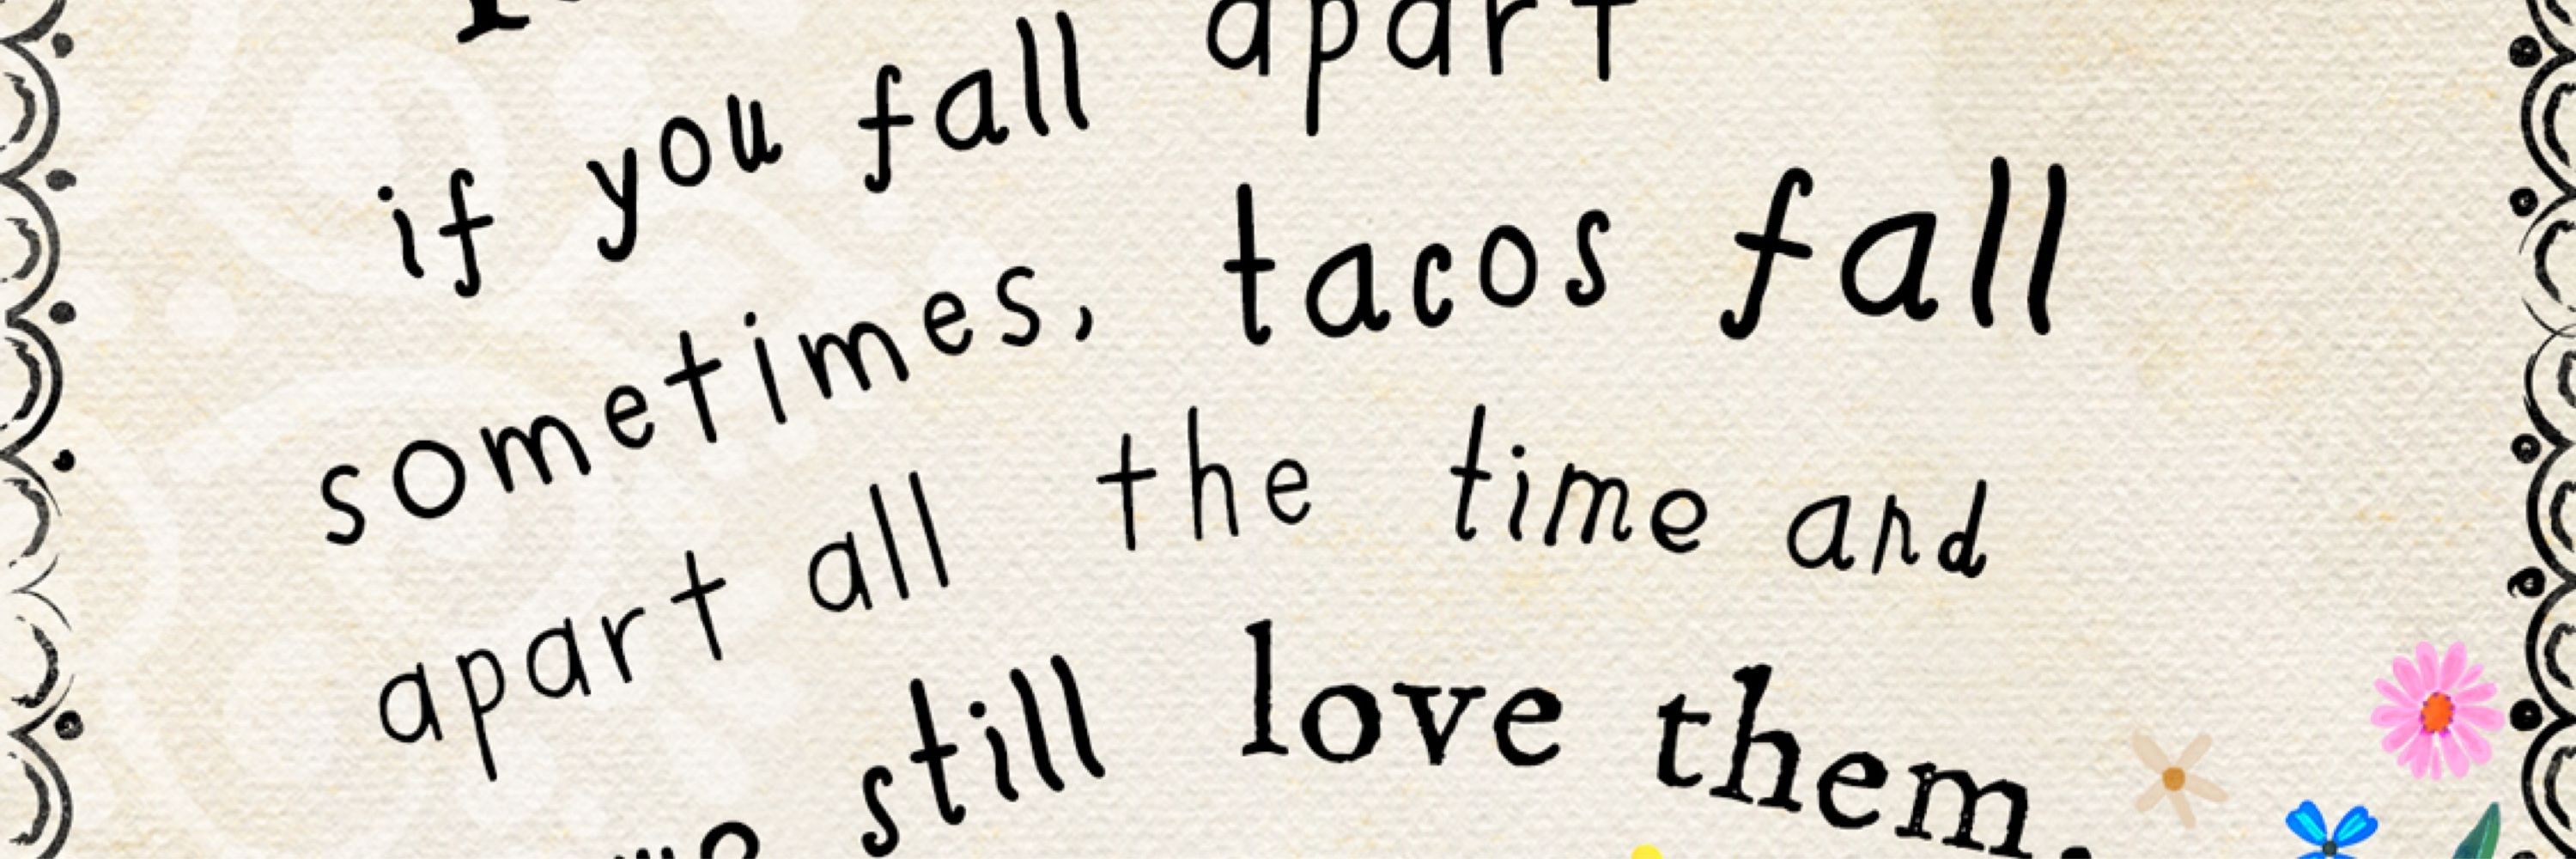 if you fall apart
sometimes, tacos fall
apart all the time and
we still love them.